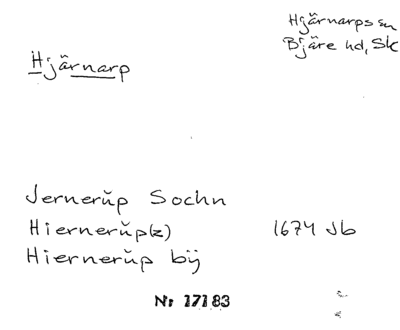 Hjärnarps sn
Bjäre hd, Sk
Hjärnarp
Jernerŭp Sochn
Hiernerŭp(z) 1674 Jb
Hiernerŭp bÿ
Nr 17183